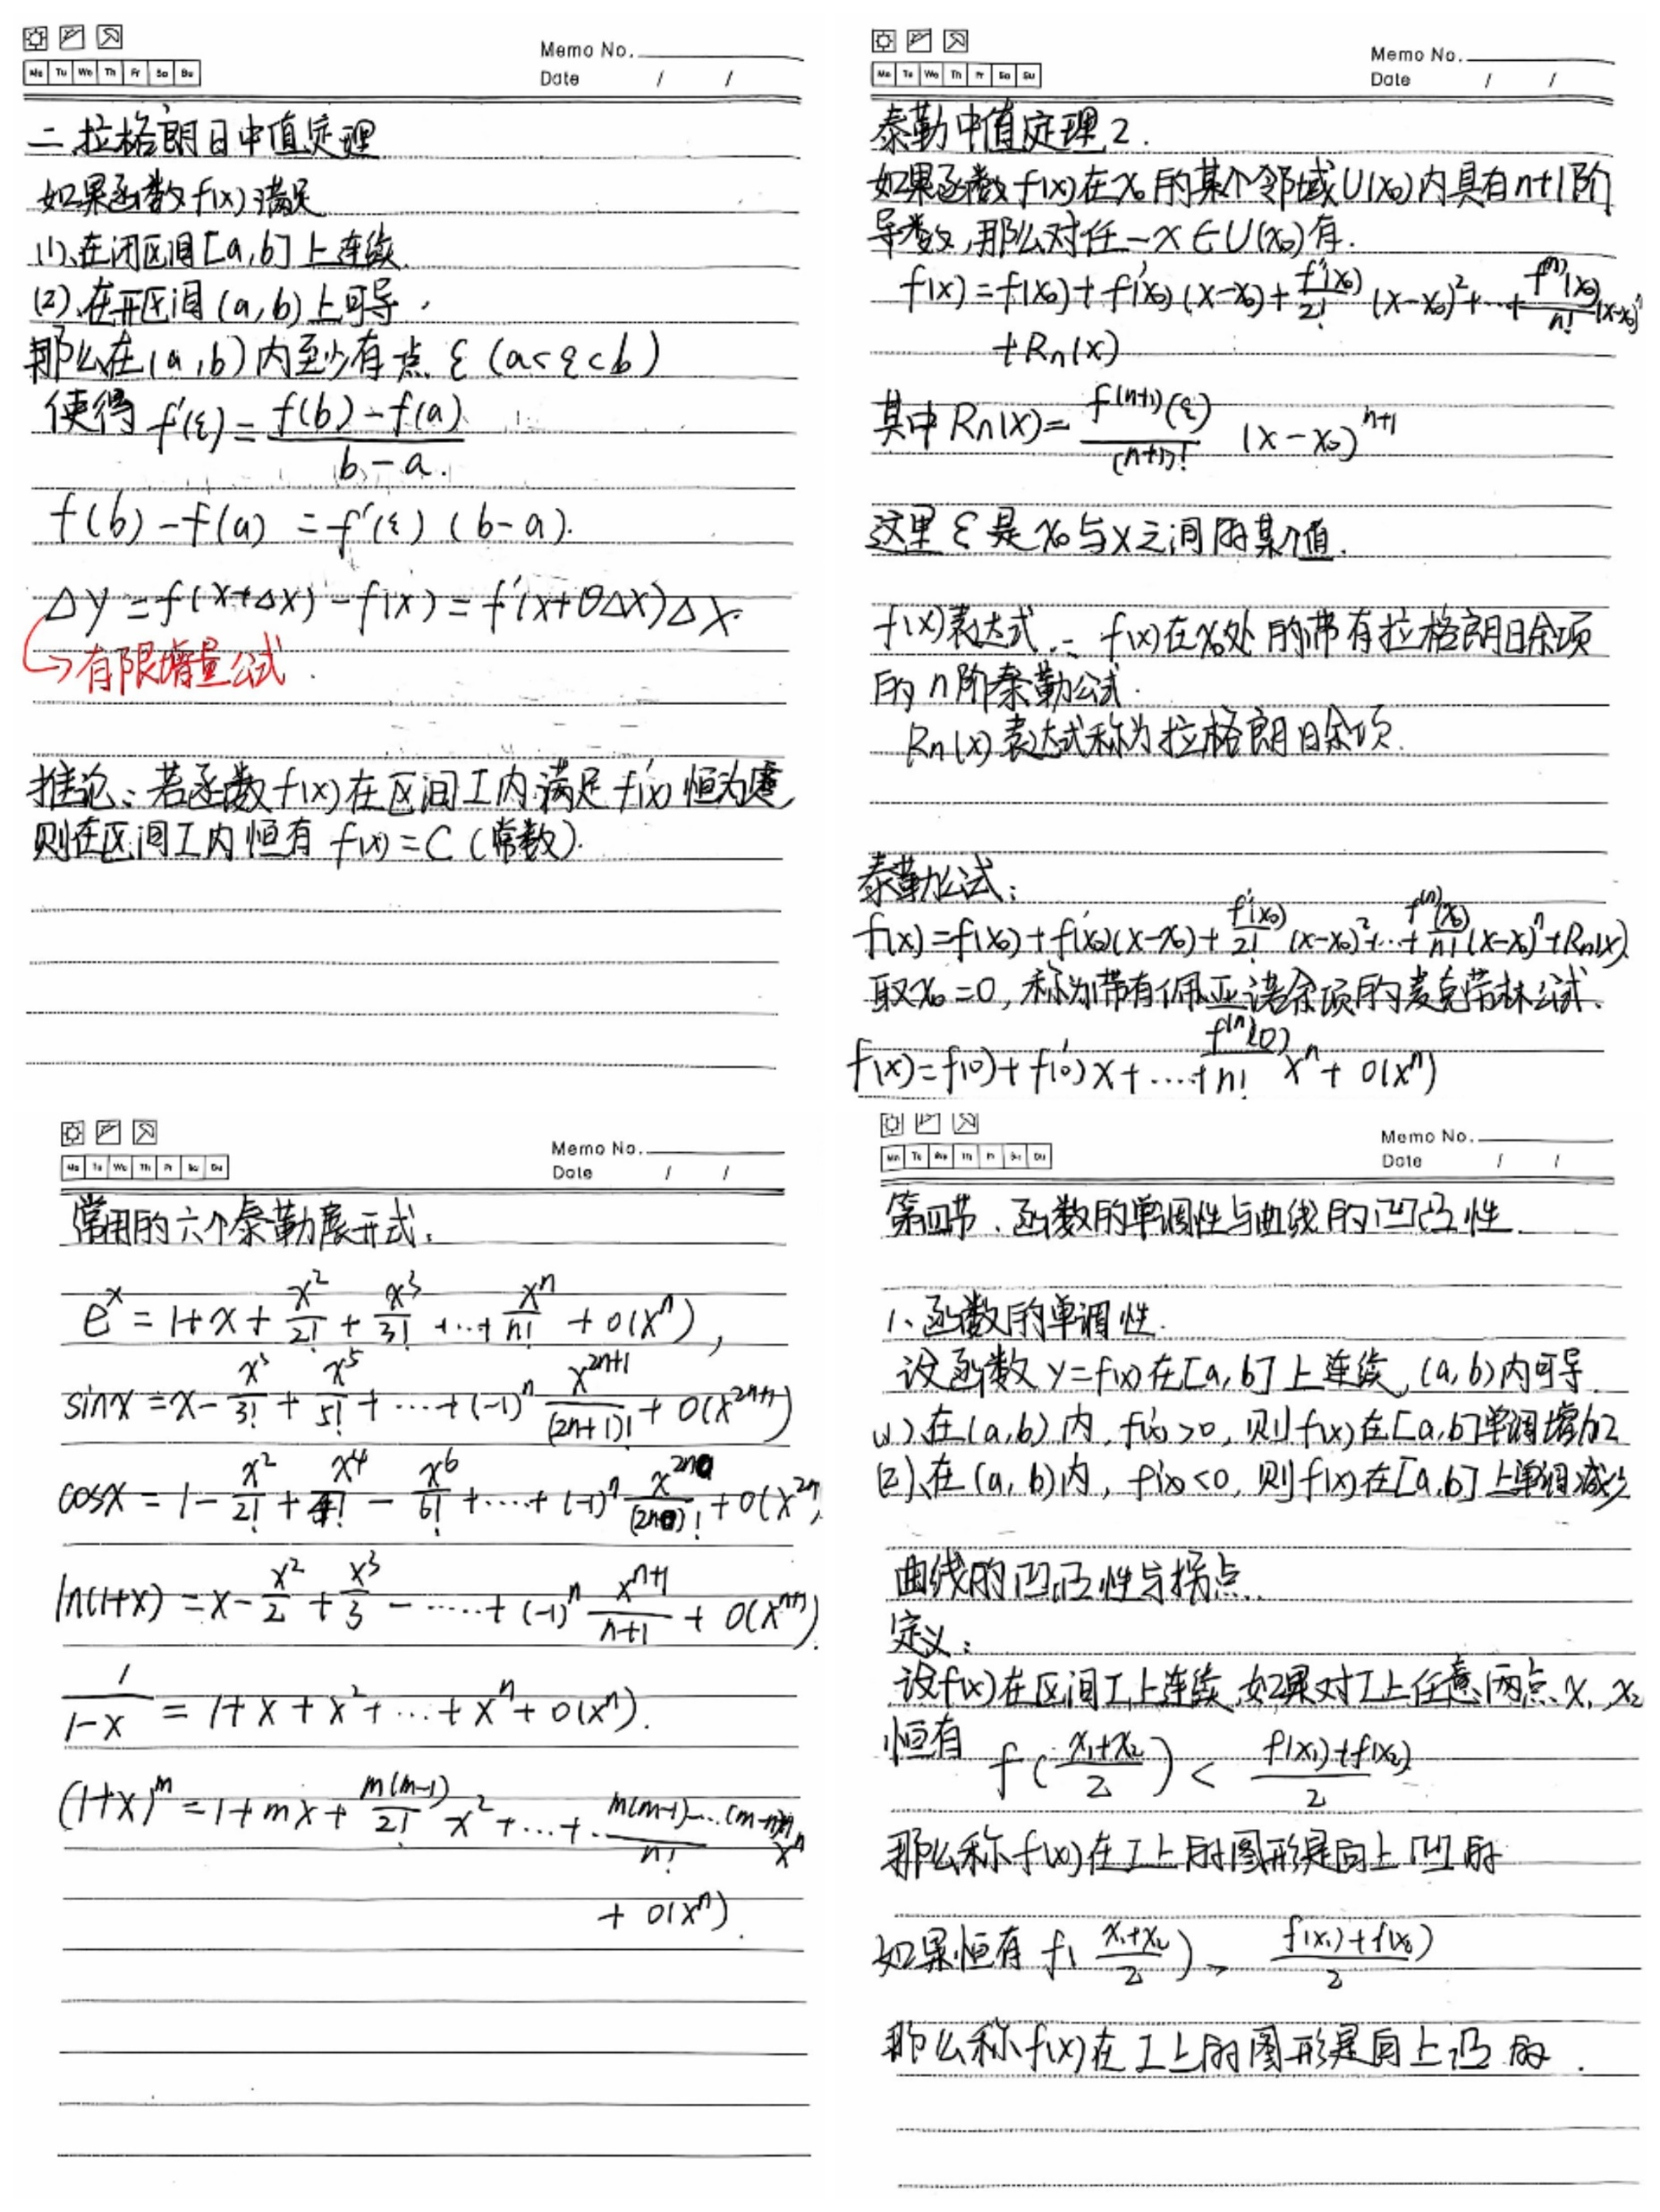 Memo No.
Mo Tu We Th Fr Sa Su
Date / /
二、拉格朗日中值定理
如果函数f(x)满足
(1)、在闭区间[a,b]上连续
(2)、在开区间(a,b)上可导.
那么在(a,b)内至少有点ξ(a<ξ<b)
使得 f'(ξ)=\frac{f(b)-f(a)}{b-a}.
f(b)-f(a)=f'(ξ)(b-a).
Δy=f(x+Δx)-f(x)=f'(x+θΔx)Δx.
→有限增量公式.
推论:若函数f(x)在区间I内满足f'(x)恒为零,
则在区间I内恒有 f(x)=C(常数).
Memo No.
Mo Tu We Th Fr Sa Su
Date / /
泰勒中值定理2.
如果函数f(x)在x₀的某个邻域U(x₀)内具有n+1阶
导数,那么对任一x∈U(x₀)有.
f(x)=f(x₀)+f'(x₀)(x-x₀)+\frac{f''(x₀)}{2!}(x-x₀)²+…+\frac{f^{(n)}(x₀)}{n!}(x-x₀)^n
+Rn(x)
其中Rn(x)=\frac{f^{(n+1)}(ξ)}{(n+1)!}(x-x₀)^{n+1}
这里ξ是x₀与x之间的某个值.
f(x)表达式:=f(x)在x₀处的带有拉格朗日余项
的n阶泰勒公式.
Rn(x)表达式称为拉格朗日余项.
泰勒公式:
f(x)=f(x₀)+f'(x₀)(x-x₀)+\frac{f''(x₀)}{2!}(x-x₀)²+…+\frac{f^{(n)}(x₀)}{n!}(x-x₀)^n+Rn(x).
取x₀=0,称为带有佩亚诺余项的麦克劳林公式.
f(x)=f(0)+f'(0)x+….+\frac{f^{(n)}(0)}{n!}x^n+o(x^n)
Memo No.
Mo Tu We Th Fr Sa Su
Date / /
常用的六个泰勒展开式:
e^x=1+x+\frac{x²}{2!}+\frac{x³}{3!}+…+\frac{x^n}{n!}+o(x^n),
sinx=x-\frac{x³}{3!}+\frac{x⁵}{5!}+…+(-1)^n\frac{x^{2n+1}}{(2n+1)!}+o(x^{2n+1})
cosx=1-\frac{x²}{2!}+\frac{x⁴}{4!}-\frac{x⁶}{6!}+…+(-1)^n\frac{x^{2n}}{(2n)!}+o(x^{2n})
ln(1+x)=x-\frac{x²}{2}+\frac{x³}{3}-……+(-1)^n\frac{x^{n+1}}{n+1}+o(x^{n+1}).
\frac{1}{1-x}=1+x+x²+…+x^n+o(x^n).
(1+x)^m=1+mx+\frac{m(m-1)}{2!}x²+…+\frac{m(m-1)…(m-n+1)}{n!}x^n
+o(x^n).
Memo No.
Mo Tu We Th Fr Sa Su
Date / /
第四节.函数的单调性与曲线的凹凸性
1、函数的单调性.
设函数y=f(x)在[a,b]上连续,(a,b)内可导.
(1)、在(a,b)内,f'(x)>0,则f(x)在[a,b]单调增加
(2)、在(a,b)内,f'(x)<0,则f(x)在[a,b]上单调减少
曲线的凹凸性与拐点.
定义:
设f(x)在区间I上连续,如果对I上任意两点x₁,x₂
恒有 f(\frac{x₁+x₂}{2})<\frac{f(x₁)+f(x₂)}{2}
那么称f(x)在I上的图形是向上凹的
如果恒有 f(\frac{x₁+x₂}{2})>\frac{f(x₁)+f(x₂)}{2}
那么称f(x)在I上的图形是向上凸的.